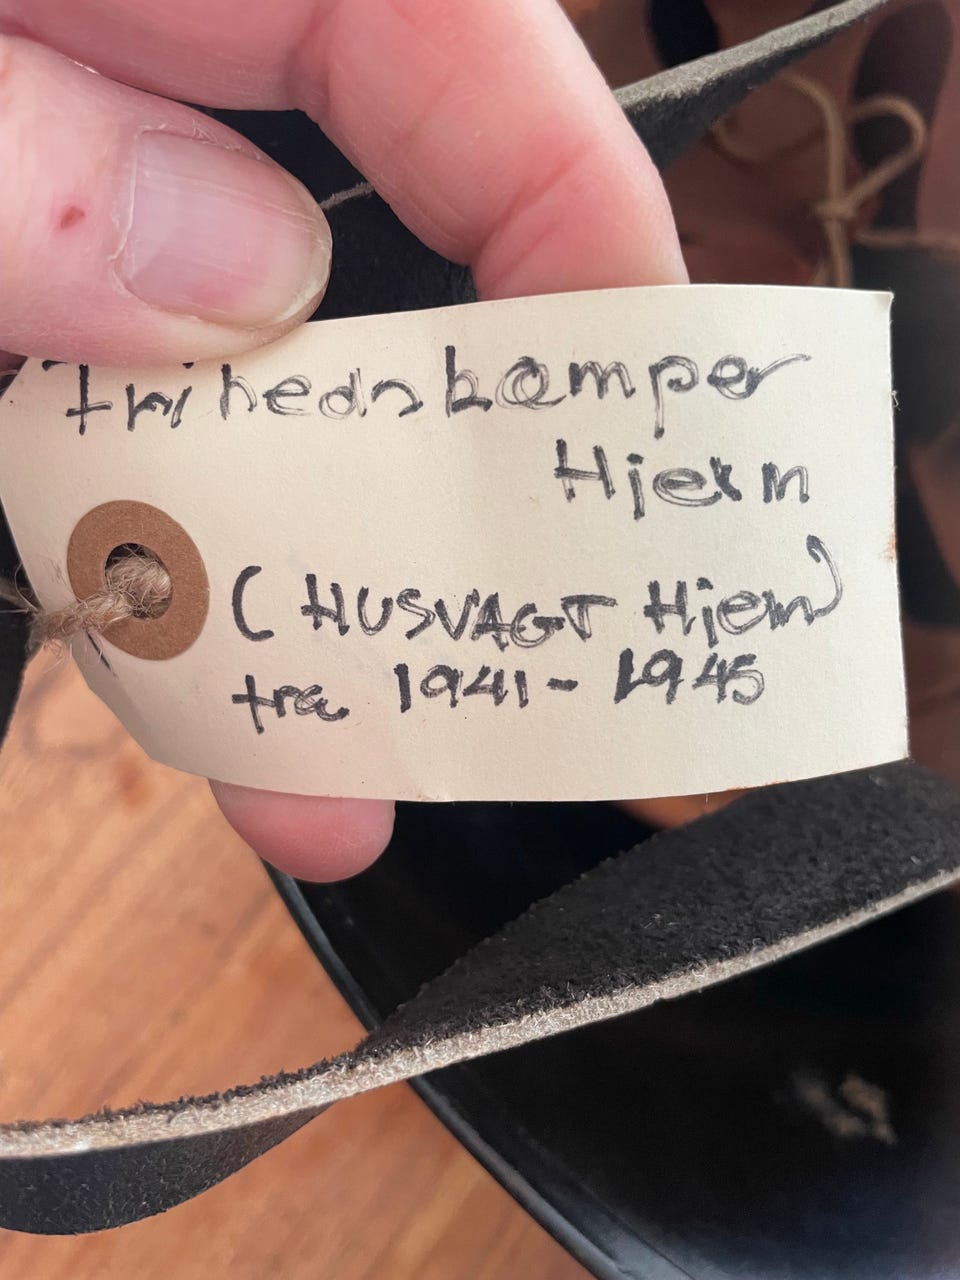 Frihedskæmper
Hjelm
(HUSVAGT Hjelm)
fra 1941 - 1945